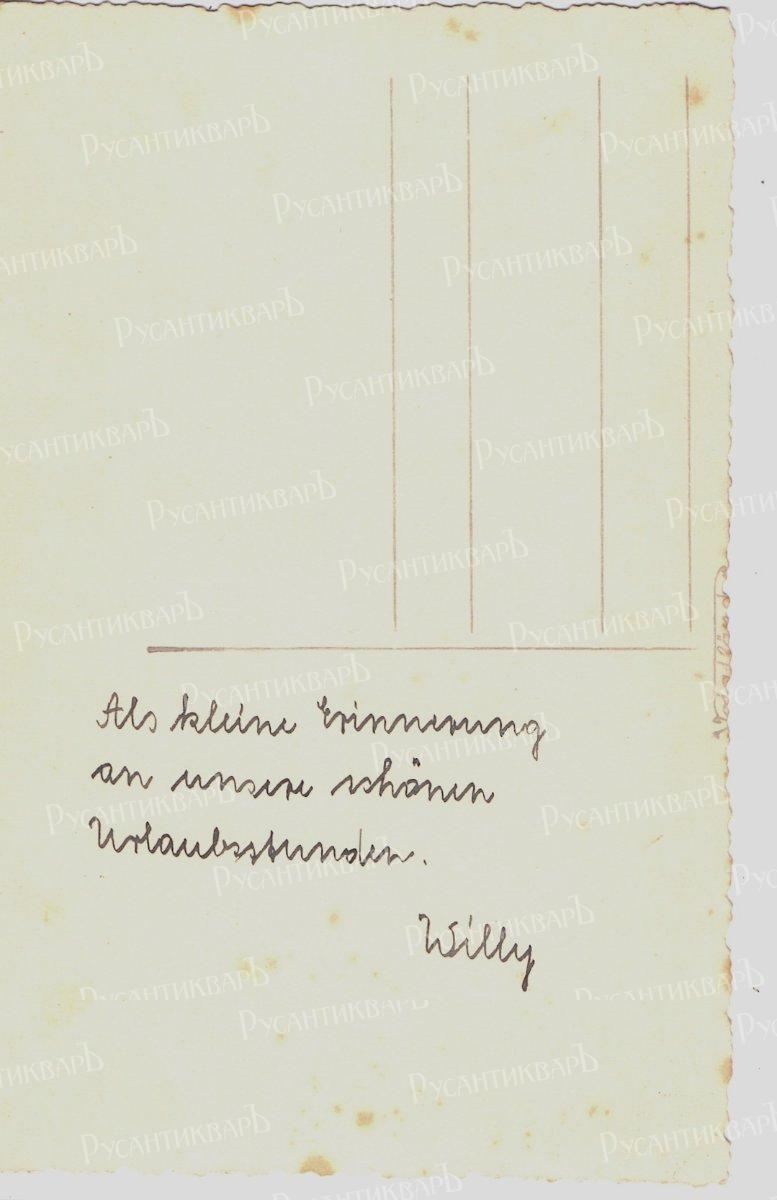 Als kleine Erinnerung
an unsere schönen
Urlaubsstunden.
Willy
РусАнтикварЪ